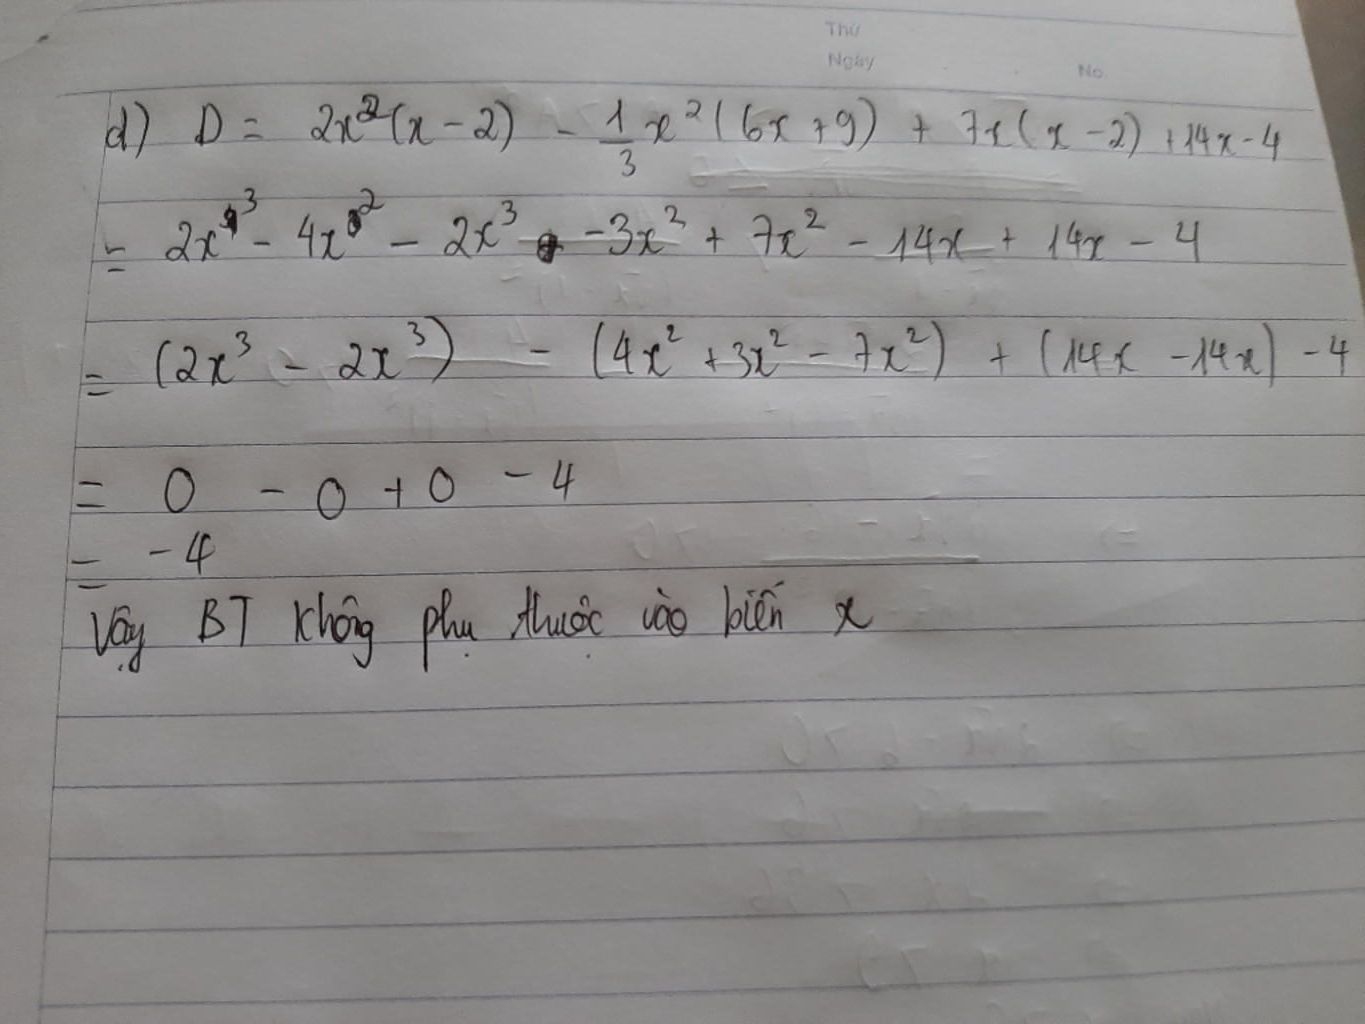 Thứ
Ngày
No.
d) D = 2x²(x - 2) - 1/3 x²(6x + 9) + 7x(x - 2) + 14x - 4
= 2x³ - 4x² - 2x³ - 3x² + 7x² - 14x + 14x - 4
= (2x³ - 2x³) - (4x² + 3x² - 7x²) + (14x - 14x) - 4
= 0 - 0 + 0 - 4
= -4
Vậy BT không phụ thuộc vào biến x